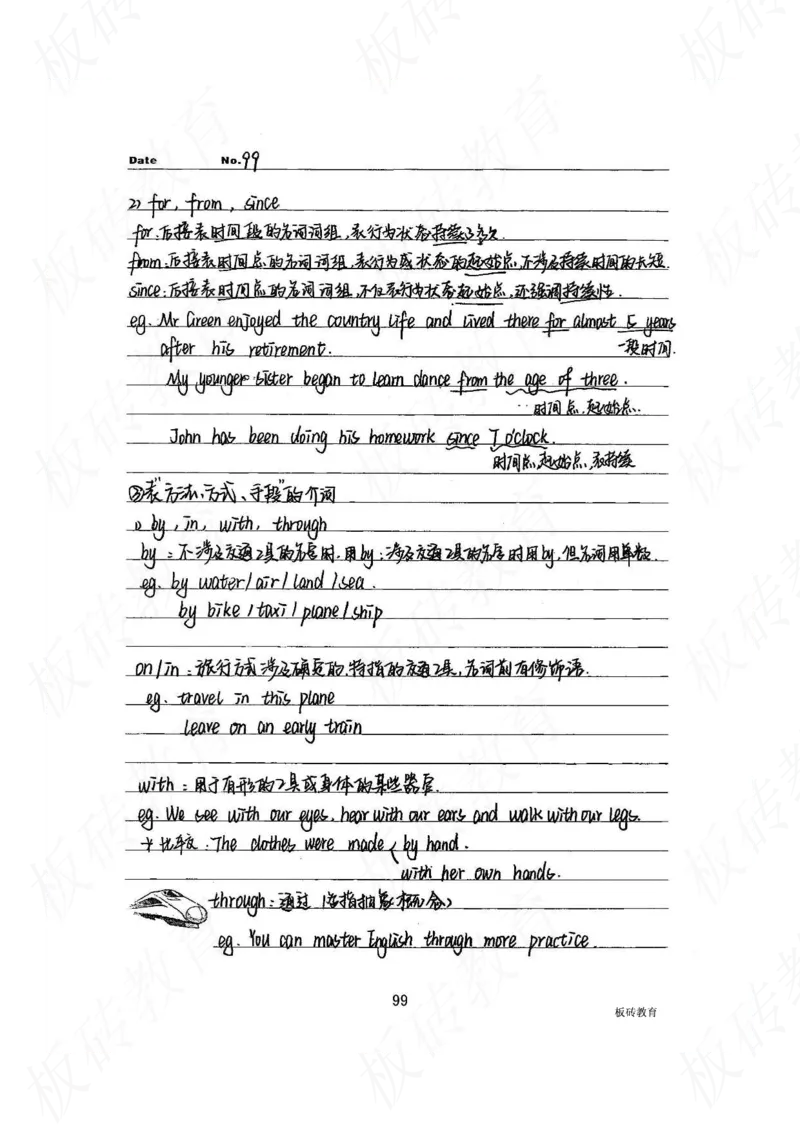 Date No. 99
2) for, from, since
for:后接表时间段的名词词组,表行为状态持续了多久
from:后接表时间点的名词词组,表行为或状态的起始点,不涉及持续时间的长短.
since:后接表时间点的名词词组,不仅表行为状态起始点,还强调持续性.
eg. Mr Green enjoyed the country life and lived there for almost 5 years
after his retirement. 一段时间.
My younger sister began to learn dance from the age of three.
时间点,起始点.
John has been doing his homework since 7 o'clock.
时间点,起始点,表持续
②表"方法、方式、手段"的介词
1) by, in, with, through
by:不涉及交通工具的名字时,用by;涉及交通工具的名字时用by,但名词用单数.
eg. by water/air/land/sea.
by bike/taxi/plane/ship
on/in:旅行方式涉及确定的,特指的交通工具,名词前有修饰语.
eg. travel in this plane
leave on an early train
with:用于有形的工具或身体的某些器官.
eg. We see with our eyes, hear with our ears and walk with our legs.
比较:The clothes were made by hand.
with her own hands.
through:通过(多指抽象概念)
eg. You can master English through more practice.
99
板砖教育